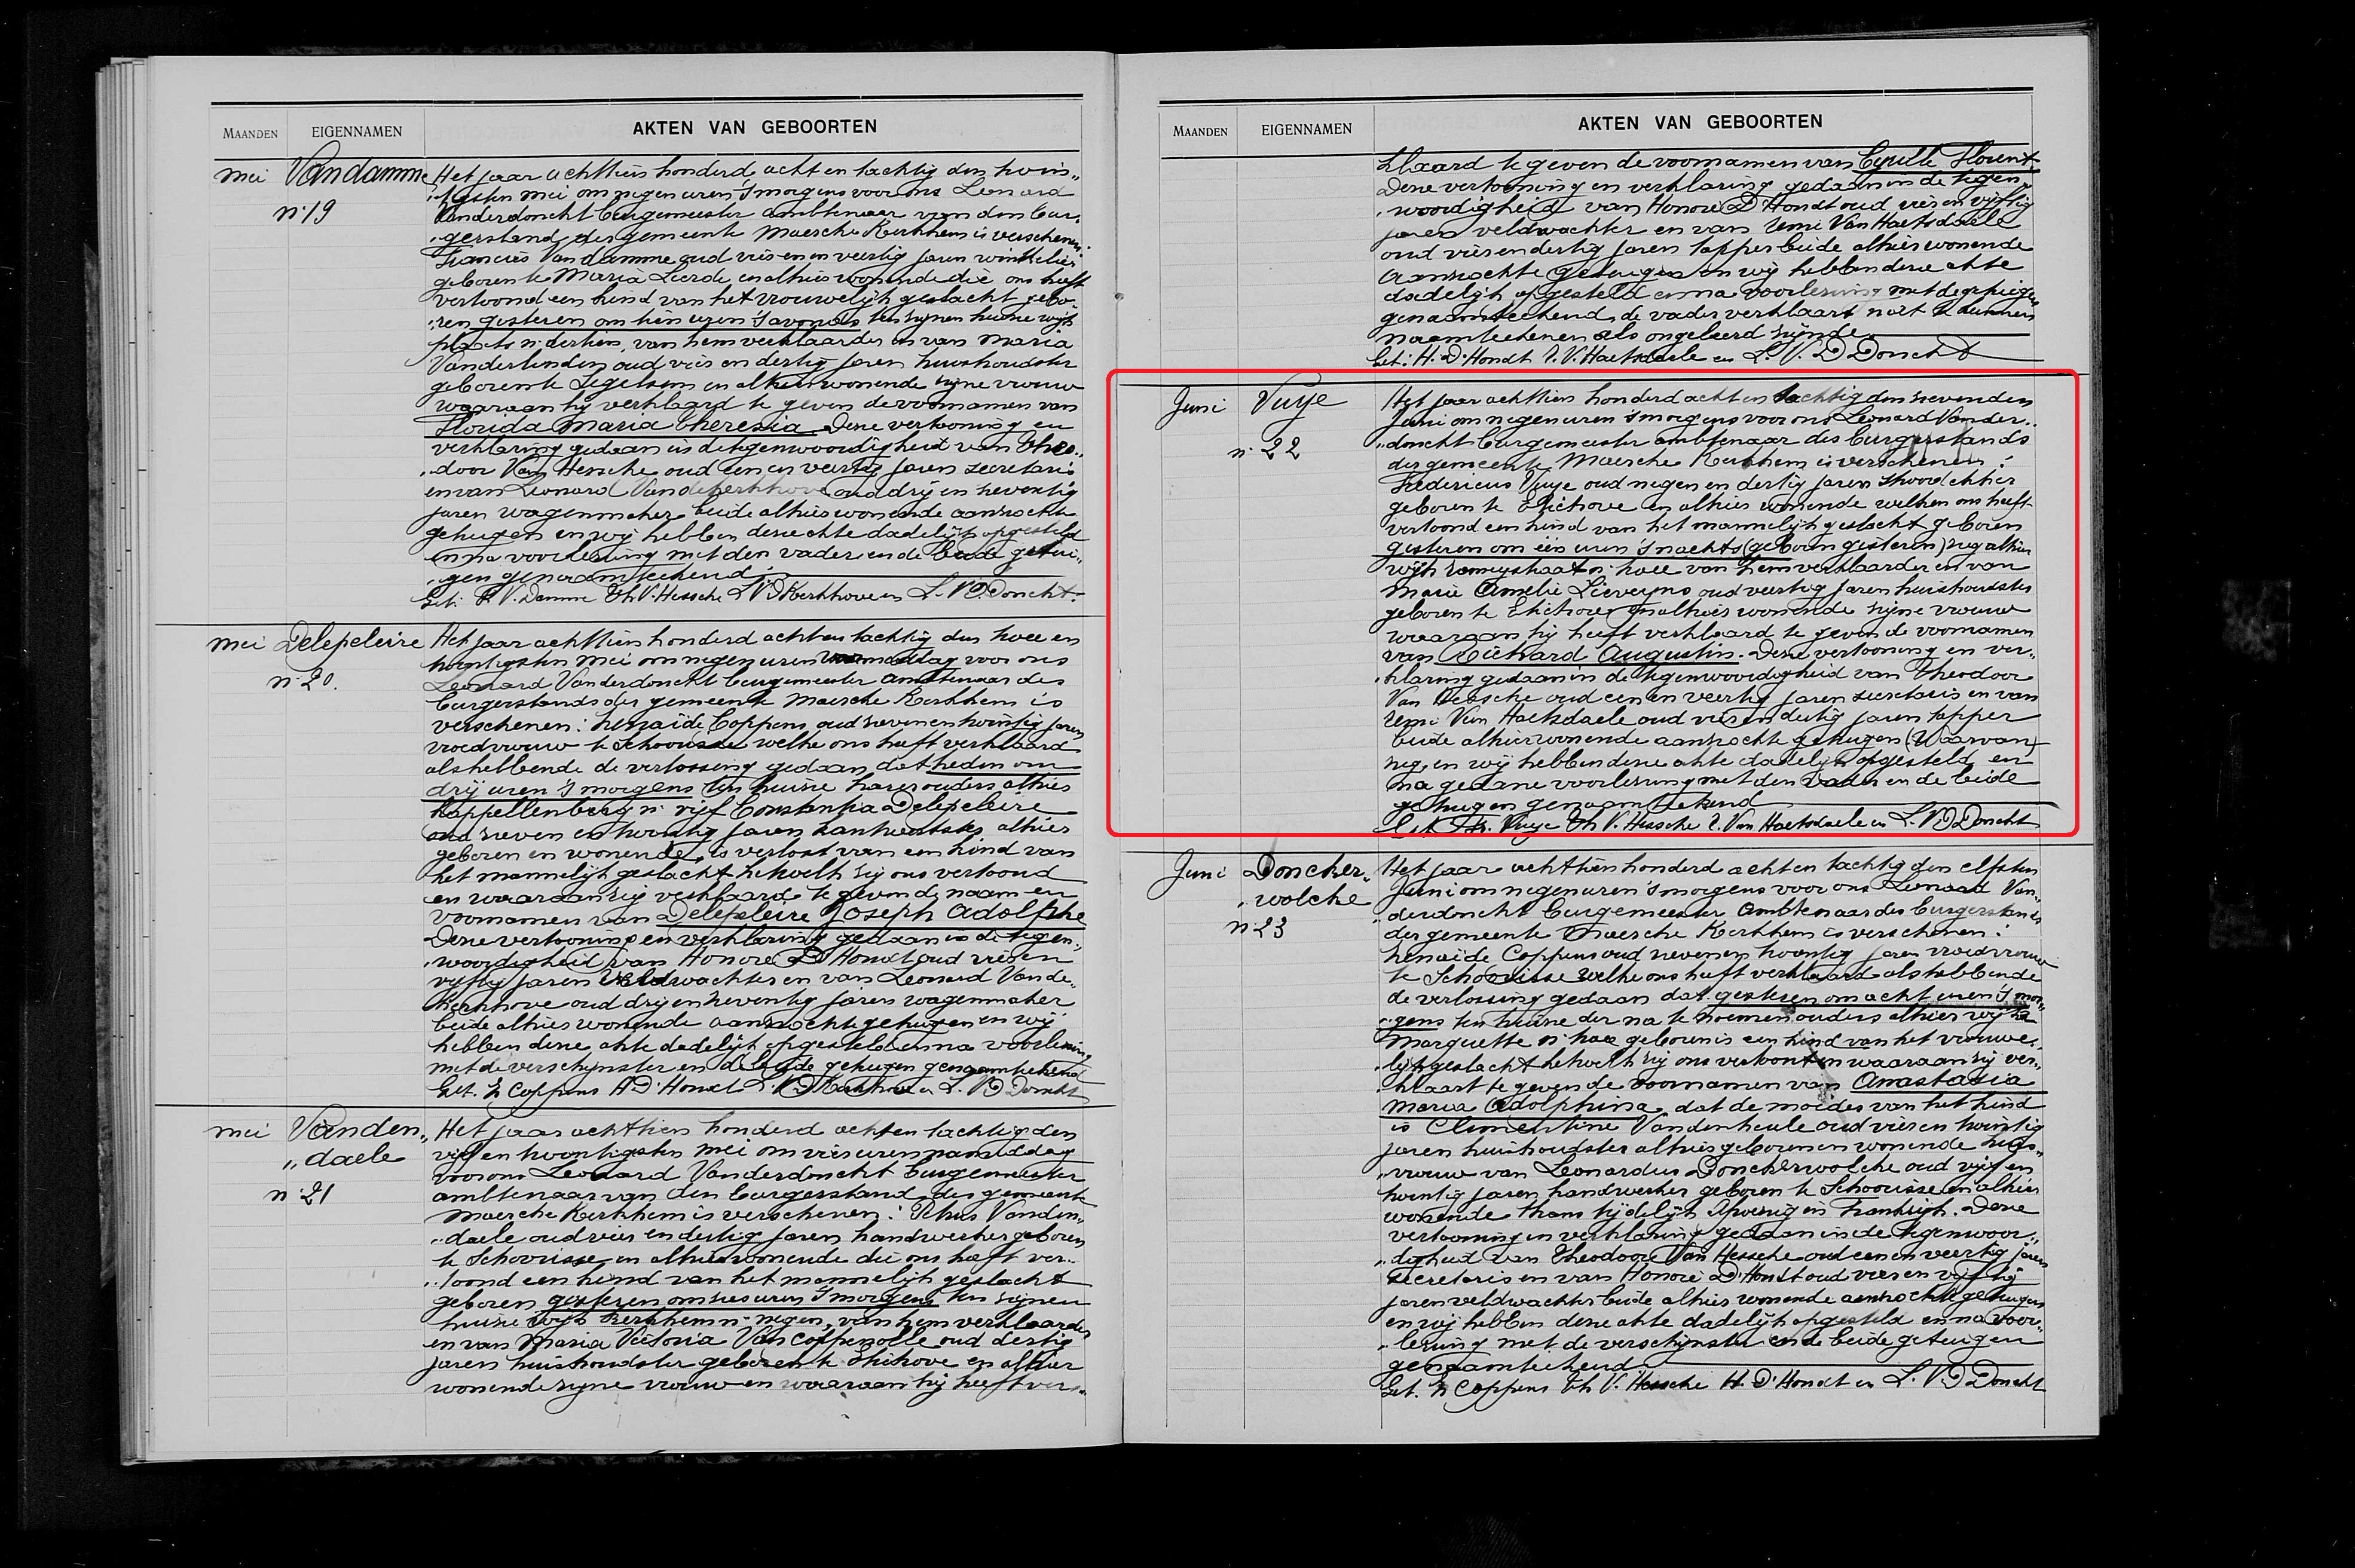 MAANDEN EIGENNAMEN AKTEN VAN GEBOORTEN
Mei Vandamme Het jaar achttien honderd acht en tachtig den twin„
n. 19 „tigsten mei om negen uren 's morgens voor ons Leonard
Vanderdonckt burgemeester ambtenaar van den bur„
„gerstand der gemeente Maercke Kerkhem is verschenen:
Francies Van damme oud vier en veertig jaren winkelier
geboren te Maria Leerde en alhier wonende die ons heeft
vertoond een kind van het vrouwelijk geslacht gebo„
„ren gisteren om tien uren 's avonds ten zijnen huize wijk
plaats n. dertien, van hem verklaarder en van Maria
Vanderlinden oud vier en dertig jaren huishoudster
geboren te Segelsem en alhier wonende zijne vrouw
waaraan hij verklaard te geven de voornamen van
Florida Maria Theresia. Deze vertooning en
verklaring gedaan in de tegenwoordigheid van Theo„
„door Van Hessche oud een en veertig jaren secretaris
en van Leonard Vandekerkhove oud drij en zeventig
jaren wagenmaker beide alhier wonende aanzochte
getuigen en wij hebben deze akte dadelijk opgesteld
en na voorlezing met den vader en de beide getui„
„gen genaamteekend.
Get: F. V. Damme Th V. Hessche L VD Kerkhove en L. V.D. Donckt.
Mei Delepeleire Het jaar achttien honderd acht en tachtig den twee en
n. 20. twintigsten mei om negen uren voormiddag voor ons
Leonard Vanderdonckt burgemeester ambtenaar des
burgerstands der gemeente Maercke Kerkhem is
verschenen: Zenaïde Coppens oud zeven en twintig jaren
vroedvrouw te Schoorisse welke ons heeft verklaard
als hebbende de verlossing gedaan dat heden om
drij uren 's morgens ten huize harer ouders alhier
Kappellenberg n. vijf Constantia Delepeleire
oud zeven en twintig jaren kantwerkster alhier
geboren en wonende, is verlost van een kind van
het mannelijk geslacht hetwelk zij ons vertoond
en waaraan zij verklaard te geven de naam en
voornamen van Delepeleire Joseph Adolphe
Deze vertooning en verklaring gedaan in de tegen„
„woordigheid van Honoré D'Hondt oud vier en
vijftig jaren veldwachter en van Leonard Vande„
Kerkhove oud drij en zeventig jaren wagenmaker
beide alhier wonende aanzochte getuigen en wij
hebben deze akte dadelijk opgesteld en na voorlezing
met de verschijnster en de beide getuigen genaamteekend
Get. Z Coppens H D'Hondt L. VD Kerkhove en L. VD Donckt
Mei Vanden„ Het jaar achttien honderd acht en tachtig den
„daele vijf en twintigsten mei om vier uren namiddag
n. 21 voor ons Leonard Vanderdonckt burgemeester
ambtenaar van den burgerstand der gemeente
Maercke Kerkhem is verschenen: Petrus Vanden„
„daele oud vier en dertig jaren handwerker geboren
te Schoorisse en alhier wonende die ons heeft ver„
„toond een kind van het mannelijk geslacht
geboren gisteren om zes uren 's morgens ten zijnen
huize wijk Kerkhem n. negen, van hem verklaarder
en van Maria Victoria Van Coppenolle oud dertig
jaren huishoudster geboren te Etichove en alhier
wonende zijne vrouw en waaraan hij heeft ver„
MAANDEN EIGENNAMEN AKTEN VAN GEBOORTEN
klaard te geven de voornamen van Cyrille Florent
Deze vertooning en verklaring gedaan in de tegen„
„woordigheid van Honoré D'Hondt oud vier en vijftig
jaren veldwachter en van Remi Van Haetsdaele
oud vier en dertig jaren tapper beide alhier wonende
aanzochte getuigen en wij hebben deze akte
dadelijk opgesteld en na voorlezing met de getuigen
genaamteekend, de vader verklaart niet te kunnen
naamteekenen als ongeleerd zijnde
Get: H. D'Hondt R. V. Haetsdaele en L. V. D Donckt
Juni Vuye Het jaar achttien honderd acht en tachtig den zevenden
n. 22 Juni om negen uren 's morgens voor ons Leonard Vander„
„donckt burgemeester ambtenaar des burgerstands
der gemeente Maercke Kerkhem is verschenen:
Fredericus Vuye oud negen en dertig jaren
geboren te Etichove en alhier wonende welken ons heeft
vertoond een kind van het mannelijk geslacht geboren
gisteren om één uren 's nachts (geboren gisteren) zeg alhier
wijk n. twee van hem verklaarder en van
Marie Amelie Lieveyns oud veertig jaren huishoudster
geboren te Etichove en alhier wonende zijne vrouw
waaraan hij heeft verklaard te geven de voornamen
van Richard Augustin. Deze vertooning en ver„
„klaring gedaan in de tegenwoordigheid van Theodoor
Van Hessche oud een en veertig jaren secretaris en van
Remi Van Haetsdaele oud vier en dertig jaren tapper
beide alhier wonende aanzochte getuigen (Waarvan)
zeg, en wij hebben deze akte dadelijk opgesteld, en
na gedane voorlezing met den vader en de beide
getuigen genaamteekend
Get Fr. Vuye Th V. Hessche R. Van Haetsdaele en L. VD Donckt
Juni Doncker„ Het jaar achttien honderd acht en tachtig den elfsten
„wolcke Juni om negen uren 's morgens voor ons Leonard Van„
n. 23 „derdonckt burgemeester ambtenaar des burgerstands
der gemeente Maercke Kerkhem is verschenen:
Zenaïde Coppens oud zeven en twintig jaren vroedvrouw
te Schoorisse welke ons heeft verklaard als hebbende
de verlossing gedaan dat gisteren om acht uren 's mor„
„gens ten huize der na te noemen ouders alhier wijk
Marguette n. twee geboren is een kind van het vrouwe„
„lijk geslacht hetwelk zij ons vertoont en waaraan zij ver„
„klaart te geven de voornamen van Anastasia
Maria Adolphina, dat de moeder van het kind
is Clementine Vandenheule oud vier en twintig
jaren huishoudster alhier geboren en wonende huis„
„vrouw van Leonardus Donckerwolcke oud vijf en
twintig jaren handwerker geboren te Schoorisse en alhier
wonende thans tijdelijk afwezig in Frankrijk. Deze
vertooning en verklaring gedaan in de tegenwoor„
„digheid van Theodoor Van Hessche oud een en veertig jaren
secretaris en van Honoré D'Hondt oud vier en vijftig
jaren veldwachter beide alhier wonende aanzochte getuigen
en wij hebben deze akte dadelijk opgesteld en na voor„
„lezing met de verschijnster en de beide getuigen
genaamteekend
Get. Z Coppens Th V. Hessche H. D'Hondt en L. V.D Donckt